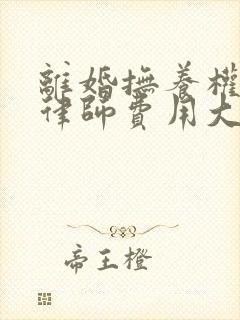 離婚撫養權
律師費用大
帝王橙